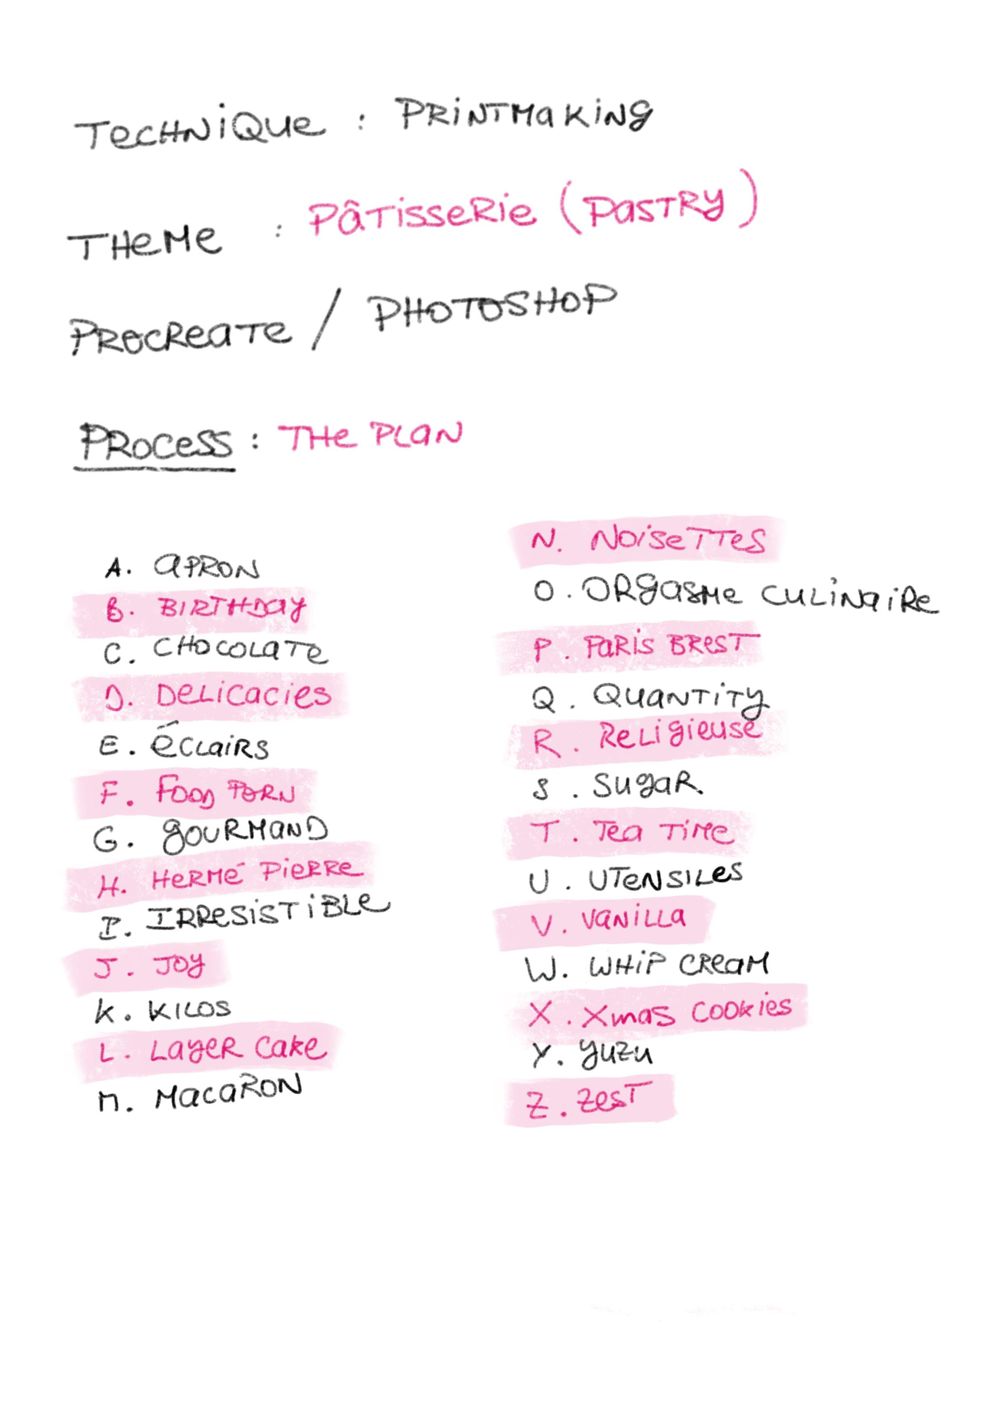 TECHNIQUE : PRINTMAKING
THEME : PÂTISSERIE (PASTRY)
PROCREATE / PHOTOSHOP
PROCESS : THE PLAN
A. APRON
B. BIRTHDAY
C. CHOCOLATE
D. DELICACIES
E. ÉCLAIRS
F. FOOD PORN
G. GOURMAND
H. HERMÉ PIERRE
I. IRRESISTIBLE
J. JOY
K. KILOS
L. LAYER CAKE
M. MACARON
N. NOISETTES
O. ORGASME CULINAIRE
P. PARIS BREST
Q. QUANTITY
R. RELIGIEUSE
S. SUGAR.
T. TEA TIME
U. UTENSILES
V. VANILLA
W. WHIP CREAM
X. XMAS COOKIES
Y. YUZU
Z. ZEST